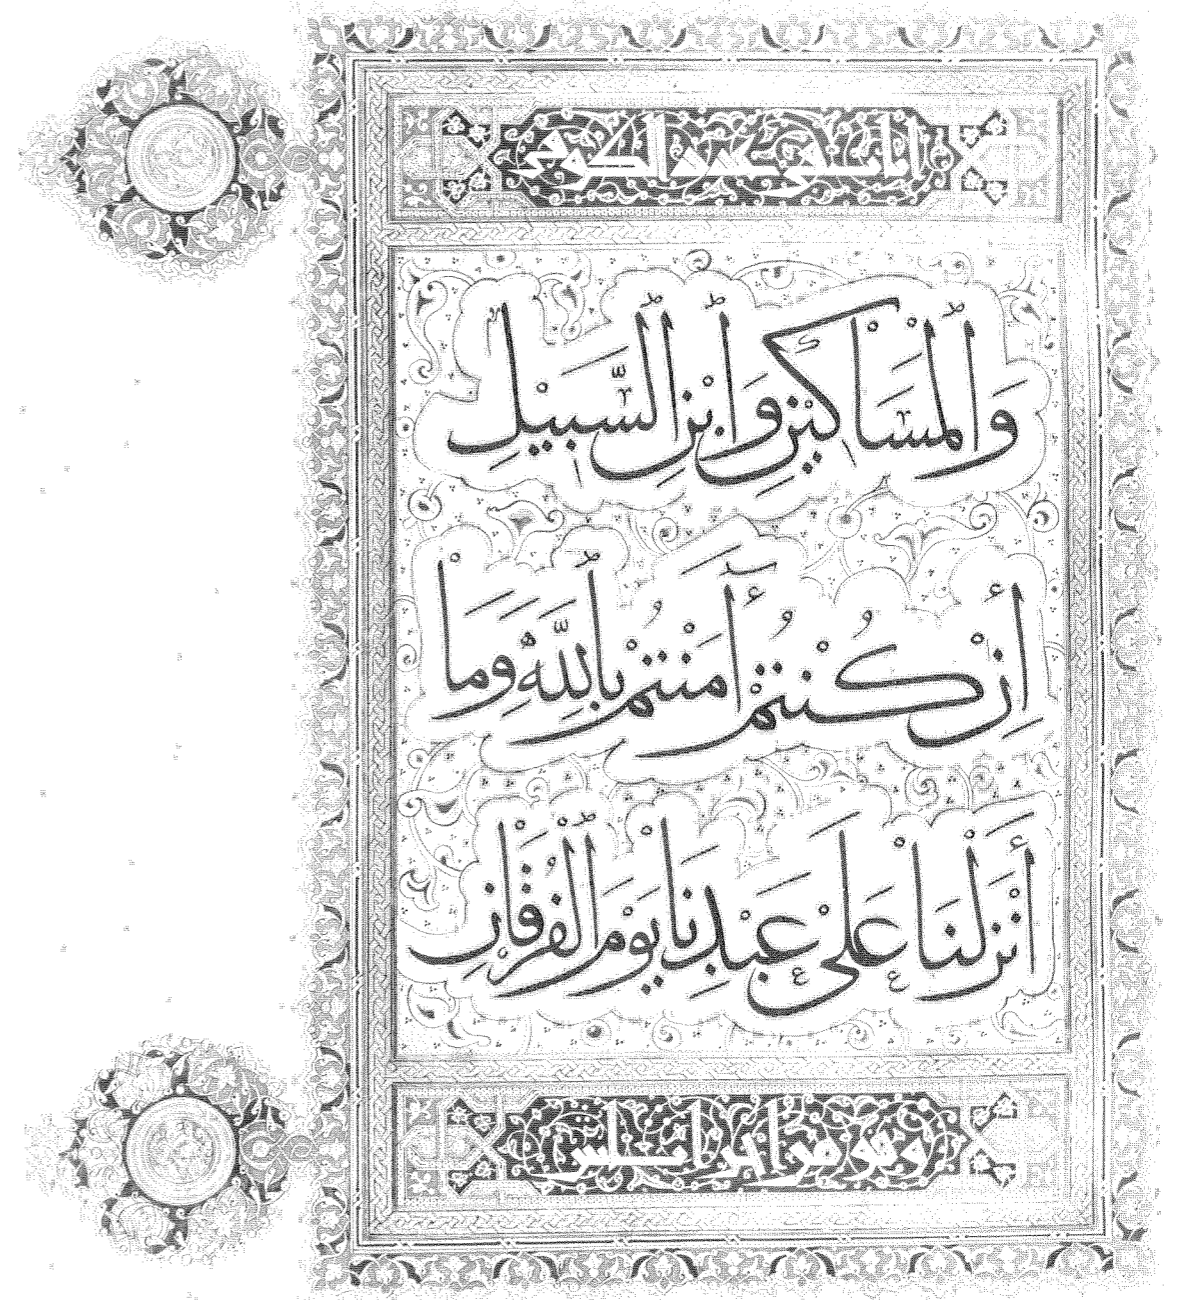 وَٱلْمَسَاكِينِ وَٱبْنِ ٱلسَّبِيلِ
إِنْ كُنْتُمْ آمَنْتُمْ بِٱللَّهِ وَمَا
أَنْزَلْنَا عَلَى عَبْدِنَا يَوْمَ ٱلْفُرْقَانِ